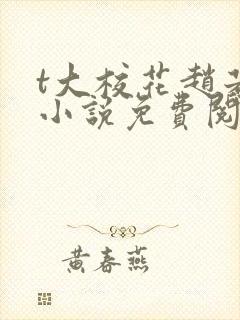 t大校花趙
小說免費閱
黃春燕